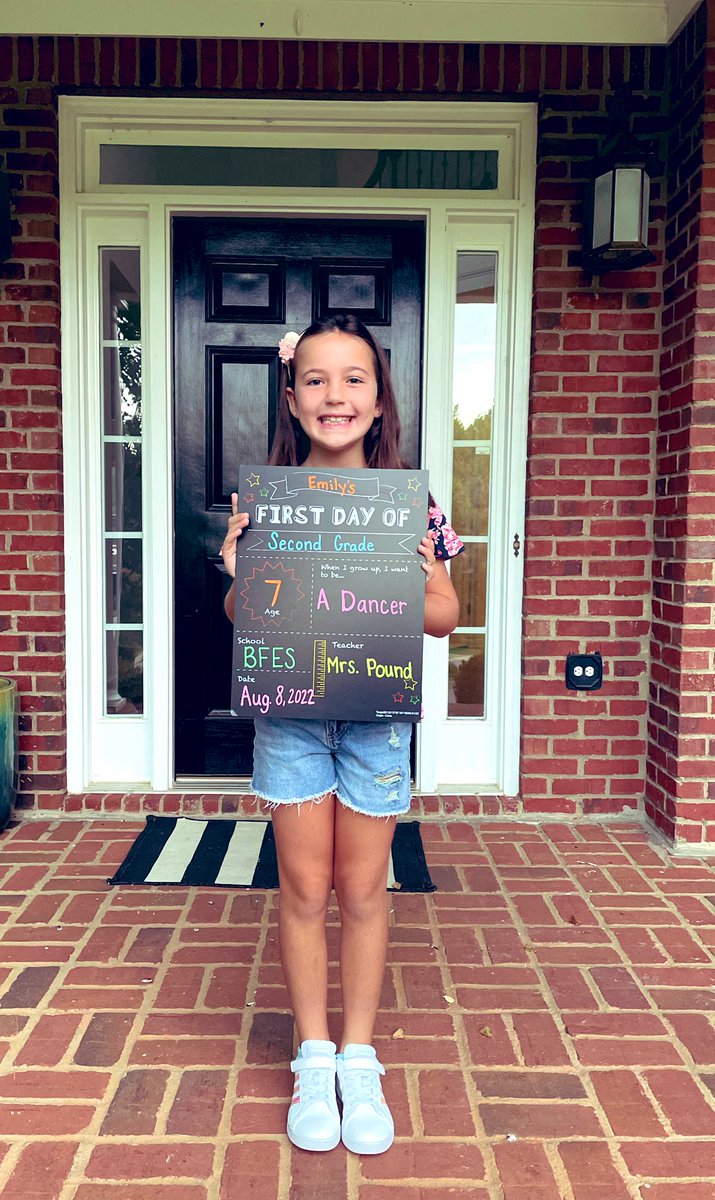 Emily's
FIRST DAY OF
Second Grade
7
Age
When I grow up, I want
to be...
A Dancer
School
BFES
Teacher
Mrs. Pound
Date
Aug. 8, 2022